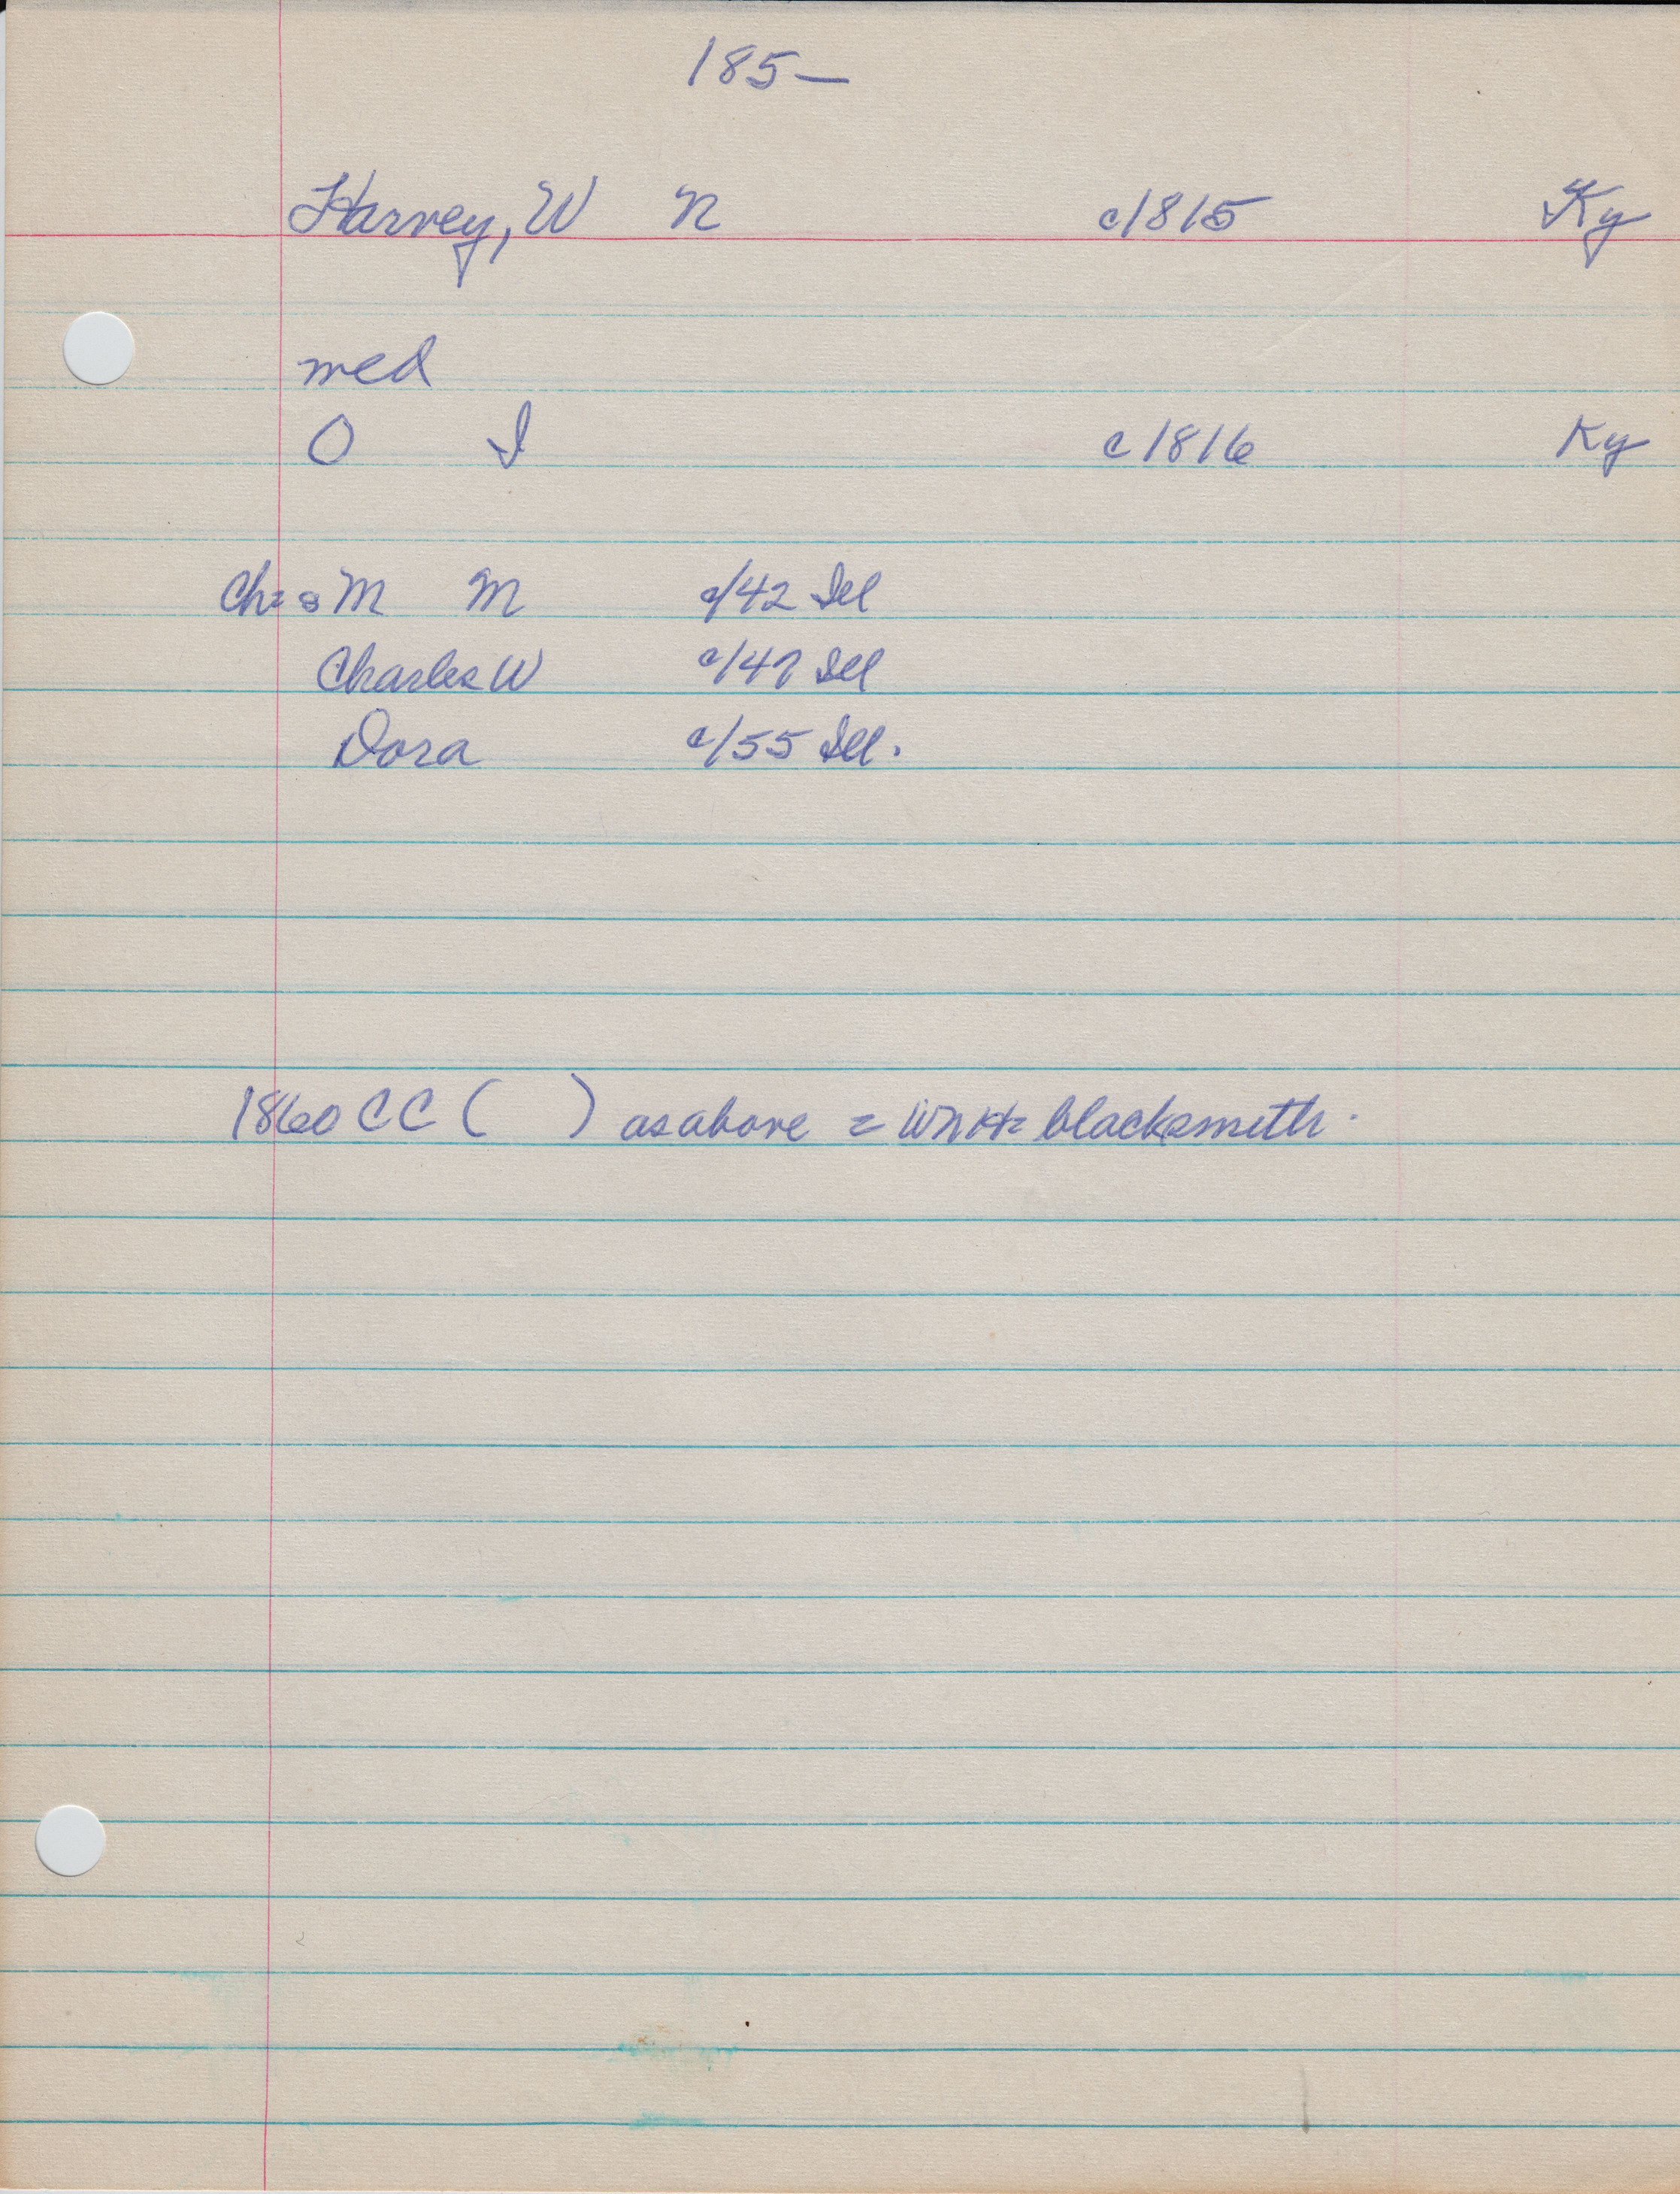 185—
Harvey, W N c1815 Ky
med
O I c1816 Ky
Ch= M M c/42 Ill
Charles W c/47 Ill
Dora c/55 Ill.
1860 CC ( ) as above = WNH= blacksmith.